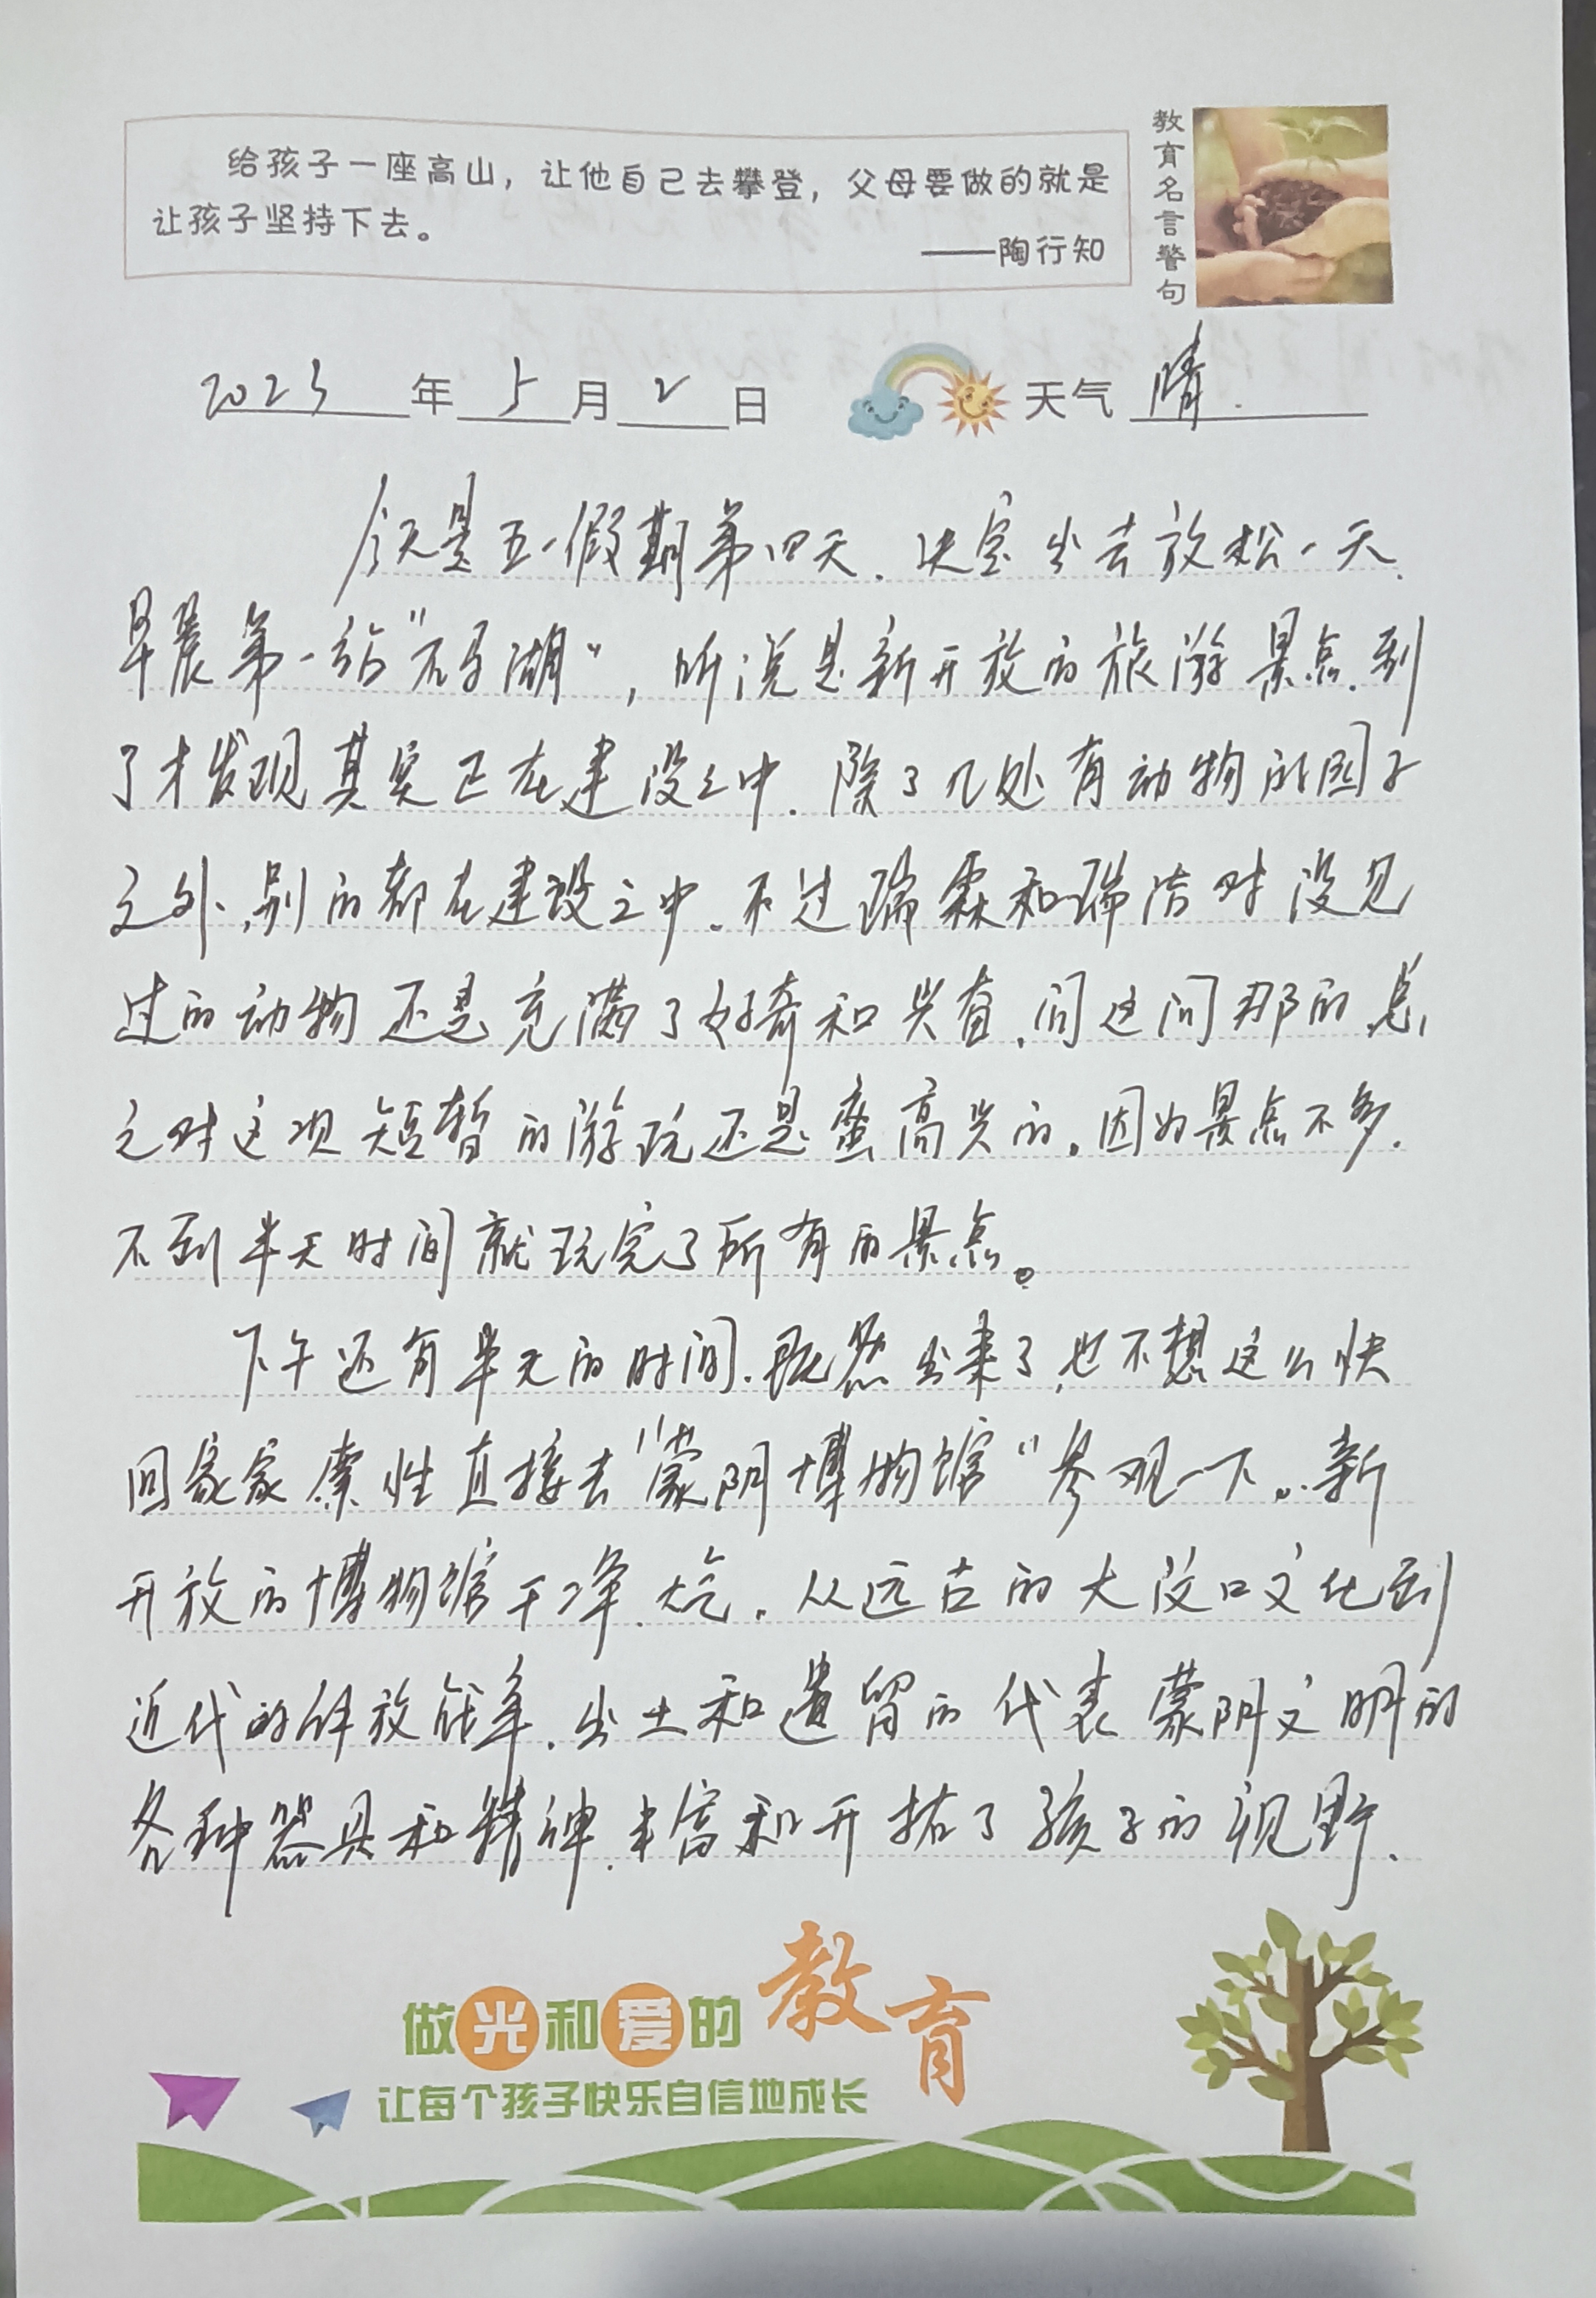 给孩子一座高山，让他自己去攀登，父母要做的就是
让孩子坚持下去。
——陶行知
教育名言警句
2023年5月2日 天气 晴.
今天是五一假期第四天.决定出去放松一天.
早晨第一站"石子湖"，听说是新开放的旅游景点.到
了才发现其实正在建设之中.除了几处有动物的园子
之外,别的都在建设之中.不过瑞霖和瑞洁对没见
过的动物还是充满了好奇和兴奋,问这问那的,总
之对这项短暂的游玩还是蛮高兴的。因为景点不多.
不到半天时间就玩完了所有的景点。
下午还有半天的时间.既然出来了,也不想这么快
回家家索性直接去"蒙阴博物馆"参观一下。新
开放的博物馆干净.大气.从远古的大汶口文化到
近代的解放战争.出土和遗留的代表蒙阴文明的
各种器具和精神.丰富和开拓了孩子的视野.
做光和爱的教育
让每个孩子快乐自信地成长